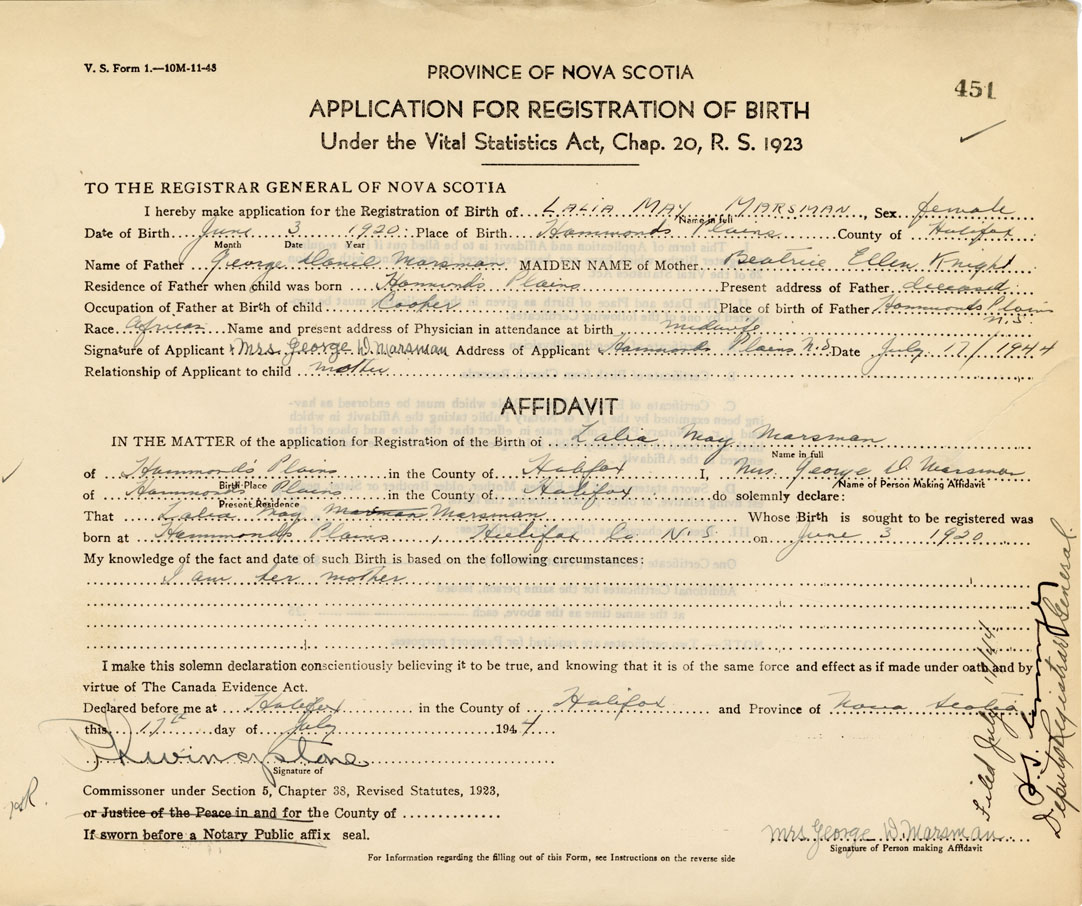 V. S. Form 1.—10M-11-43
PROVINCE OF NOVA SCOTIA
451
APPLICATION FOR REGISTRATION OF BIRTH
Under the Vital Statistics Act, Chap. 20, R. S. 1923
TO THE REGISTRAR GENERAL OF NOVA SCOTIA
I hereby make application for the Registration of Birth of LALIA MAY MARSMAN, Sex female
Name in full
Date of Birth June 3 1920 Place of Birth Hammonds Plains County of Halifax
Month Date Year
Name of Father George Daniel Marsman MAIDEN NAME of Mother Beatrice Ellen Knight
Residence of Father when child was born Hammonds Plains Present address of Father deceased
Occupation of Father at Birth of child Cooper Place of birth of Father Hammonds Plains N.S.
Race African Name and present address of Physician in attendance at birth midwife
Signature of Applicant Mrs. George D. Marsman Address of Applicant Hammonds Plains N.S. Date July 17/1944
Relationship of Applicant to child mother
AFFIDAVIT
IN THE MATTER of the application for Registration of the Birth of Lalia May Marsman
Name in full
of Hammonds Plains in the County of Halifax I, Mrs. George D. Marsman
Birth Place Name of Person Making Affidavit
of Hammonds Plains in the County of Halifax do solemnly declare:
Present Residence
That Lalia May Marsman Whose Birth is sought to be registered was
born at Hammonds Plains, Halifax Co. N.S. on June 3 1920
My knowledge of the fact and date of such Birth is based on the following circumstances:
I am her mother
I make this solemn declaration conscientiously believing it to be true, and knowing that it is of the same force and effect as if made under oath and by
virtue of The Canada Evidence Act.
Declared before me at Halifax in the County of Halifax and Province of Nova Scotia
this 17th day of July 1944
Signature of
Commissoner under Section 5, Chapter 38, Revised Statutes, 1923,
or Justice of the Peace in and for the County of
If sworn before a Notary Public affix seal.
Mrs George D. Marsman
Signature of Person making Affidavit
For Information regarding the filling out of this Form, see Instructions on the reverse side
Filed July
Deputy Registrar General.